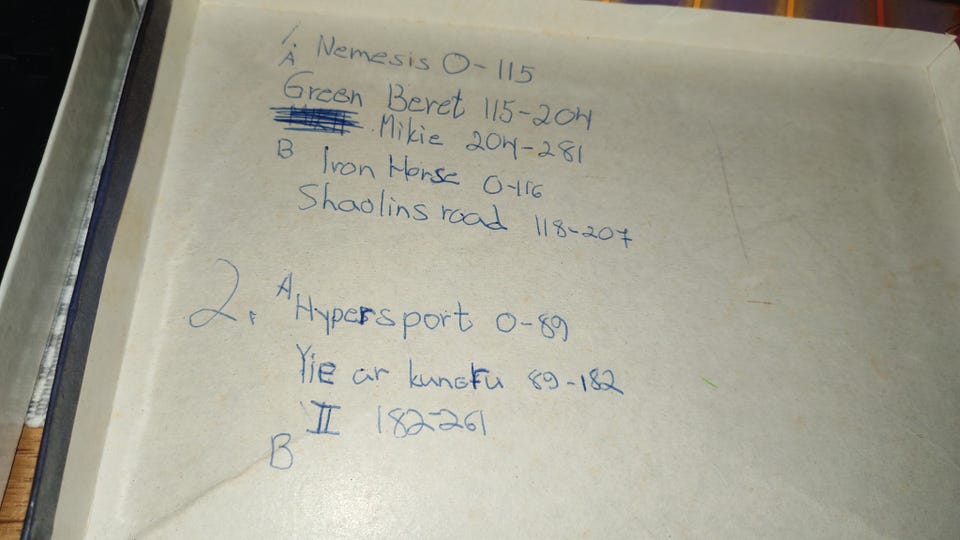 1.
A Nemesis 0-115
Green Beret 115-204
Mikie 204-281
B Iron Horse 0-116
Shaolins road 118-207
2. A
Hypersport 0-89
Yie ar kungfu 89-182
II 182-261
B